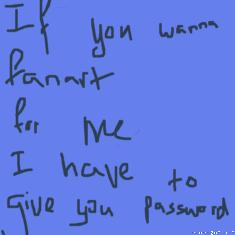 If you wanna
fanart
for me
I have to
give you password